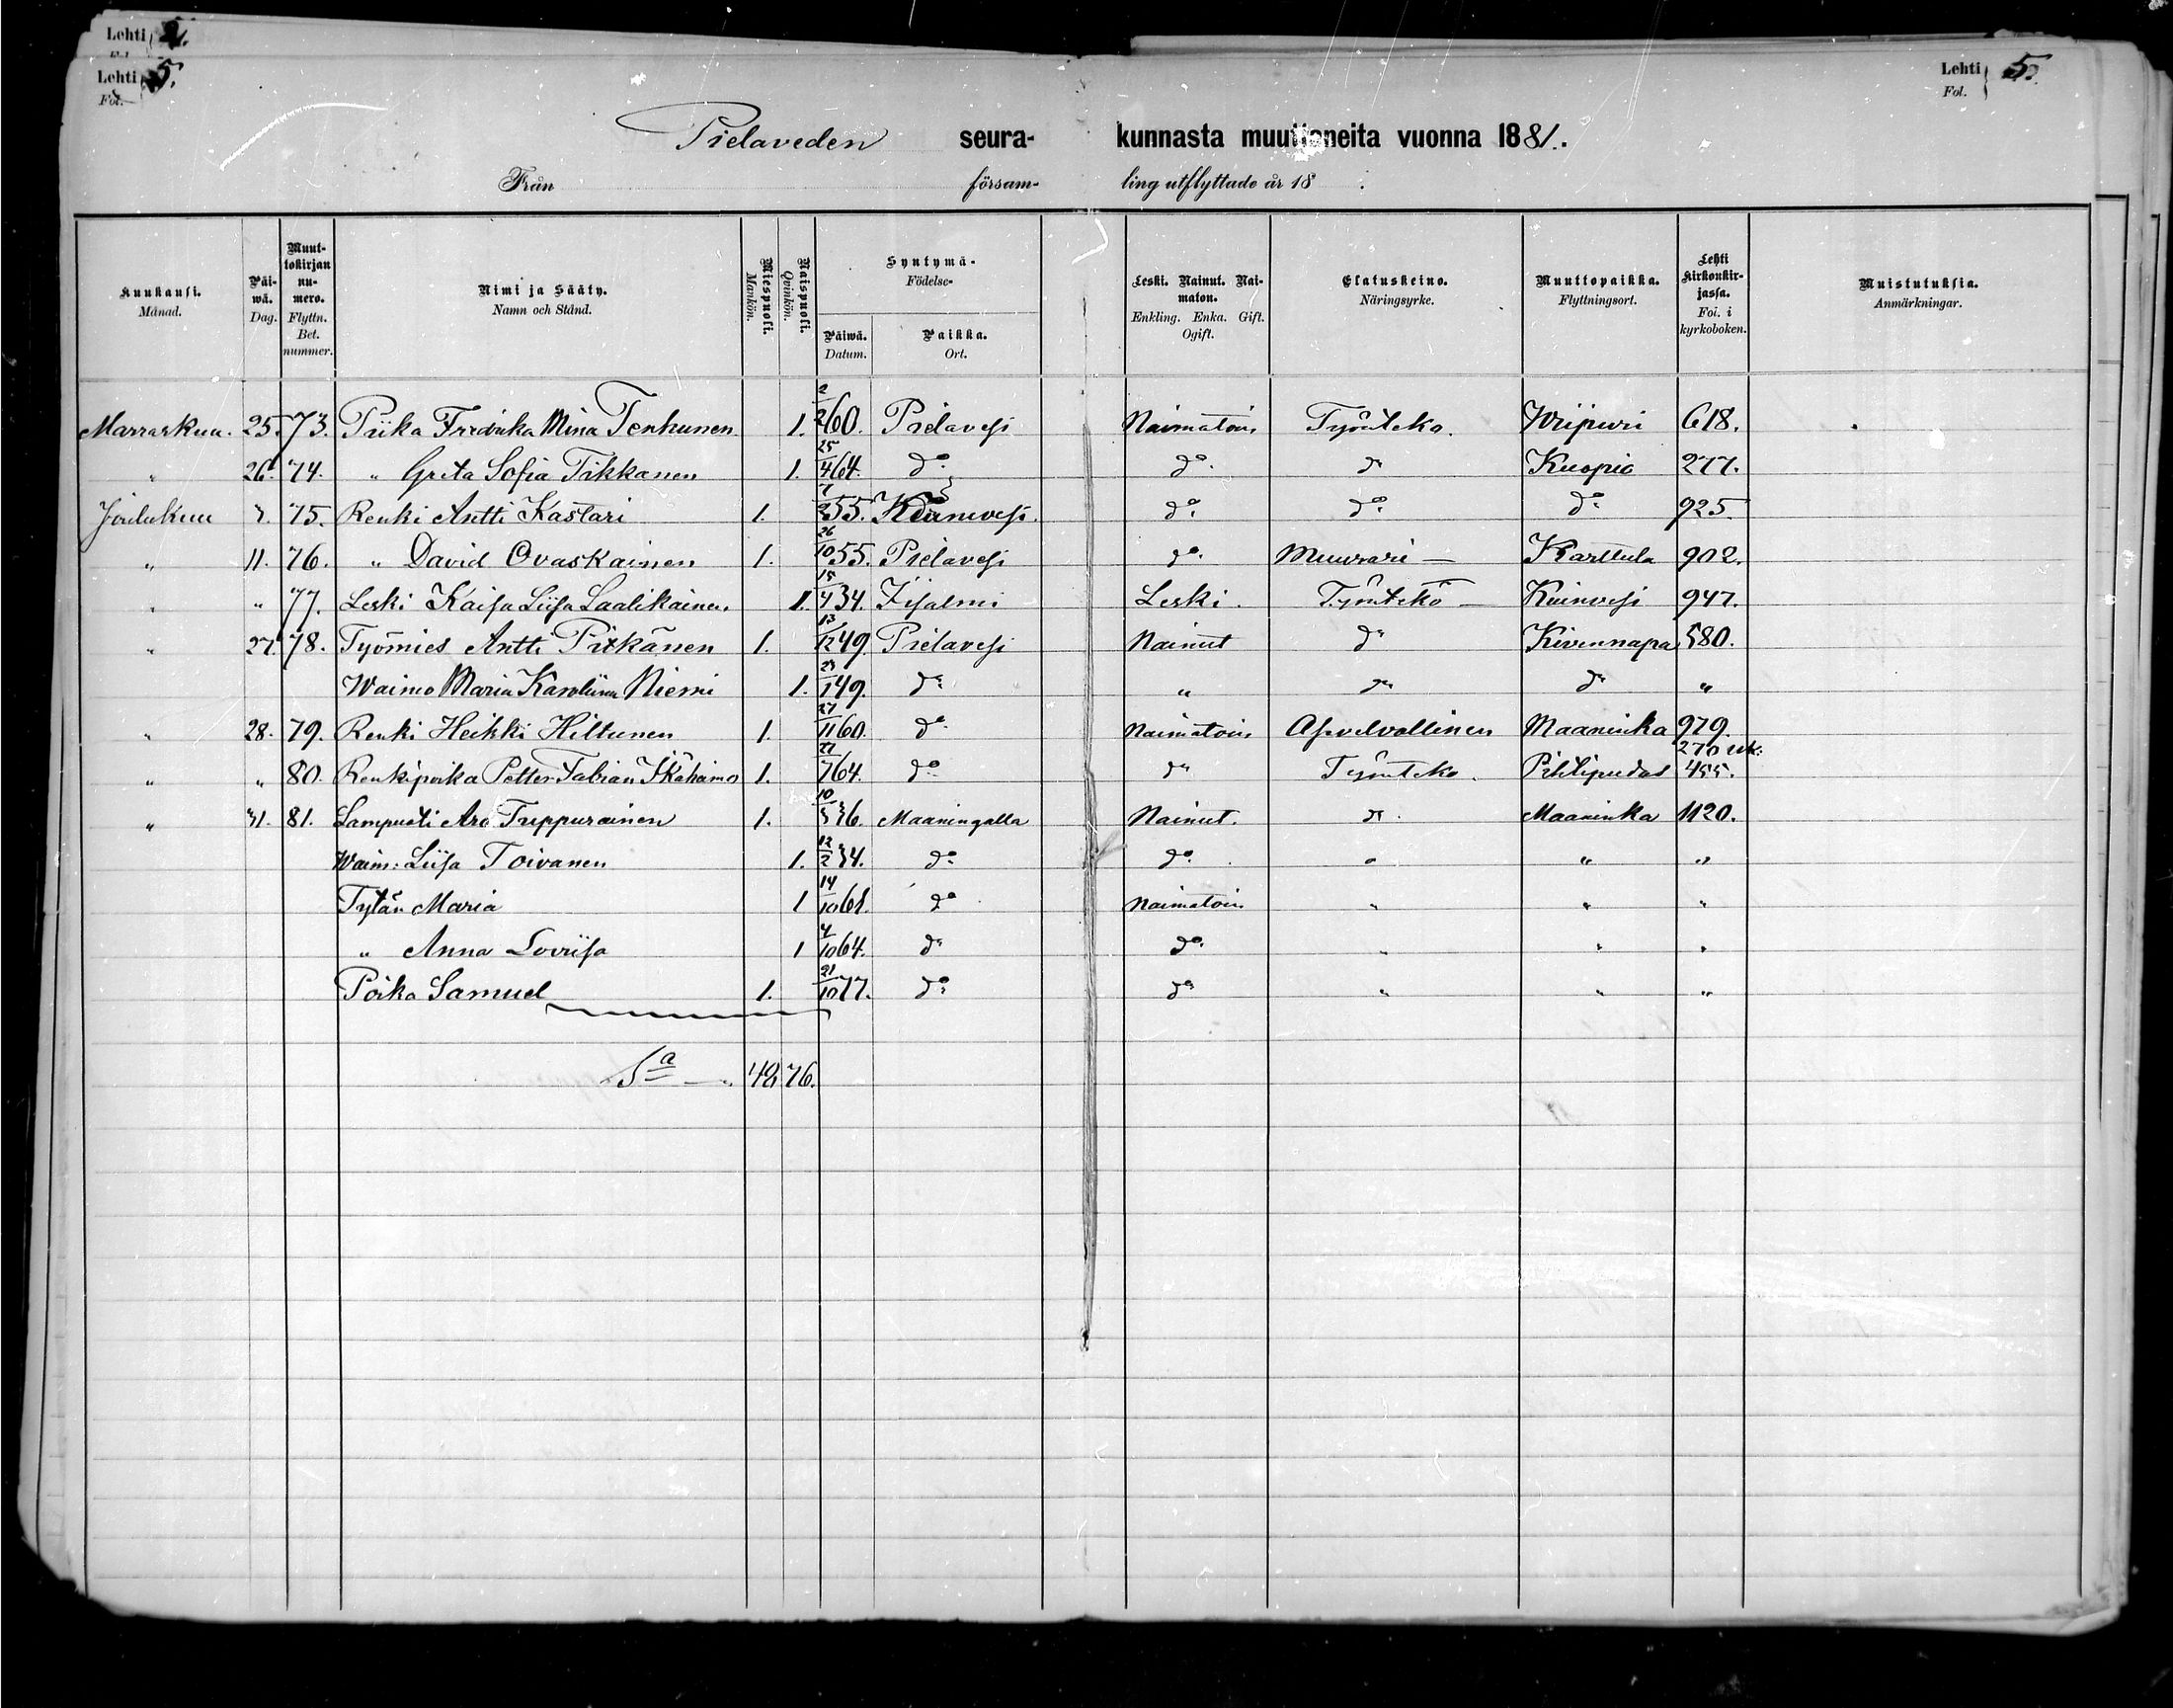 Lehti 4.
Lehti 5.
Fol.
Lehti 5.
Fol.
Pielaveden seura- kunnasta muuttaneita vuonna 1881.
Från försam- ling utflyttade år 18 .
Kuukausi. Månad. Päiwä. Dag. Muuttokirjan numero. Flyttn. Bet. nummer. Nimi ja Sääty. Namn och Stånd. Miespuoli. Mankön. Naispuoli. Qvinkön. Syntymä- Födelse- Päiwä. Datum. Paikka. Ort. Leski. Nainut. Naimaton. Enkling. Enka. Gift. Ogift. Elatuskeino. Näringsyrke. Muuttopaikka. Flyttningsort. Lehti kirkonkirjassa. Fol. i kyrkoboken. Muistutuksia. Anmärkningar.
Marraskuu. 25. 73. Piika Fredrika Mina Tenhunen 1. 2/2 60. Pielavesi Naimatoin Työnteko. Wiipuri 618.
" 26. 74. " Greta Sofia Tikkanen 1. 25/4 64. do do do Kuopio 277.
Joulukuu 7. 75. Renki Antti Kastari 1. 7/2 55. do do do 925.
" 11. 76. " David Ovaskainen 1. 26/10 55. Pielavesi do Muurari — Karttula 902.
" " 77. Leski Kaisa Liisa Laalikainen 1. 15/4 34. Iisalmi Leski. Työnteko — Keinvesi 947.
" 27. 78. Työmies Antti Pitkänen 1. 13/12 49. Pielavesi Nainut do Kivennapa 580.
Waimo Maria Karoliina Niemi 1. 24/1 49. do " do do "
" 28. 79. Renki Heikki Hiltunen 1. 27/11 60. do Naimatoin Asevelvollinen Maaninka 979.
270 uk:
" " 80. Renkipoika Petter Fabian Ikäheimo 1. 27/7 64. do do Työnteko. Pihtipudas 455.
" 31. 81. Lampuoti Aro Tuppurainen 1. 10/5 36. Maaningalla Nainut. do Maaninka 1120.
Waim: Liisa Toivanen 1. 12/2 34. do do " " "
Tytär Maria 1 14/10 61. do Naimatoin " " "
" Anna Loviisa 1 4/10 64. do do " " "
Poika Samuel 1. 21/10 77. do do " " "
Sa — 48 76.